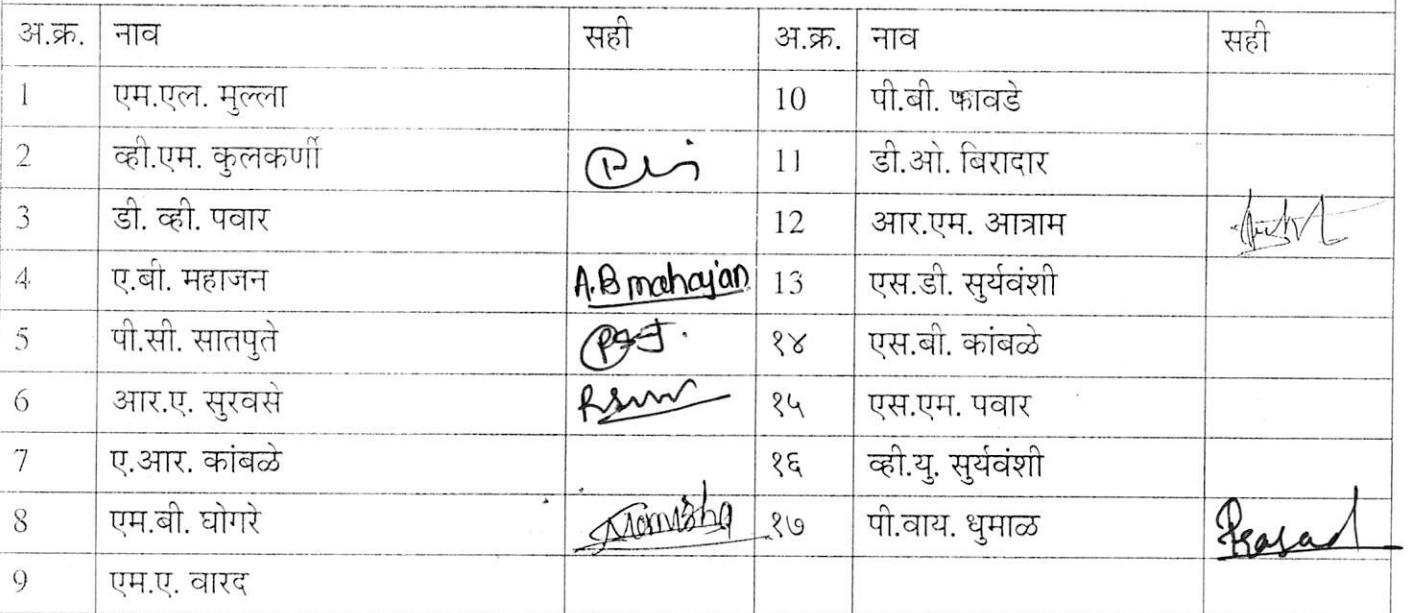 अ.क्र. नाव सही अ.क्र. नाव सही
1 एम.एल. मुल्ला 10 पी.बी. फावडे
2 व्ही.एम. कुलकर्णी 11 डी.ओ. बिरादार
3 डी. व्ही. पवार 12 आर.एम. आत्राम
4 ए.बी. महाजन A.B mahajan 13 एस.डी. सुर्यवंशी
5 पी.सी. सातपुते १४ एस.बी. कांबळे
6 आर.ए. सुरवसे १५ एस.एम. पवार
7 ए.आर. कांबळे १६ व्ही.यु. सुर्यवंशी
8 एम.बी. घोगरे Manisha १७ पी.वाय. धुमाळ Prasad
9 एम.ए. वारद